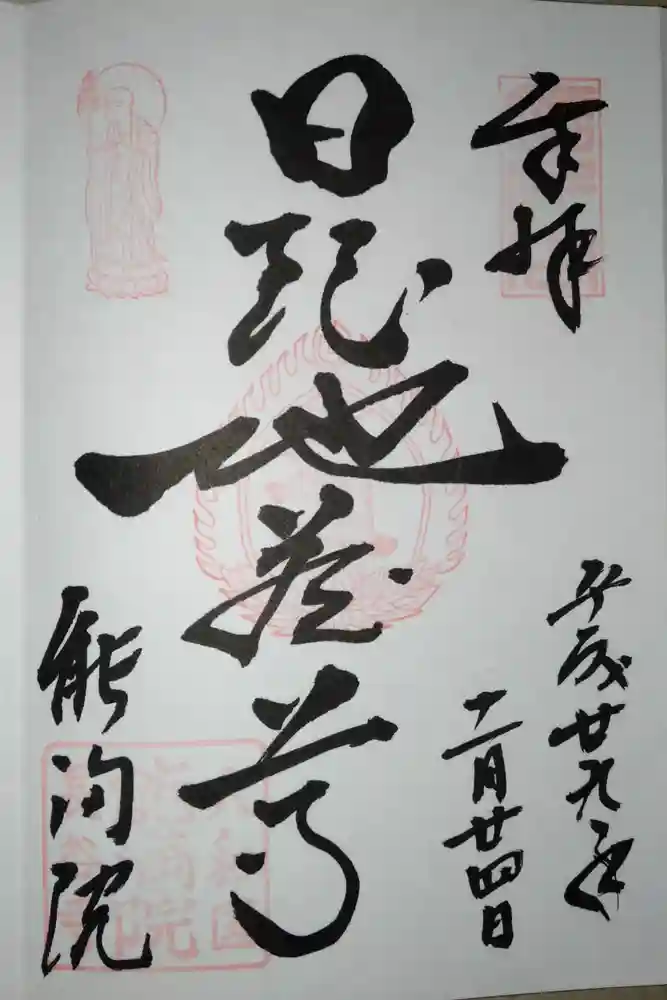 奉拝
平成廿九年
十一月廿四日
日限地蔵尊
能満院